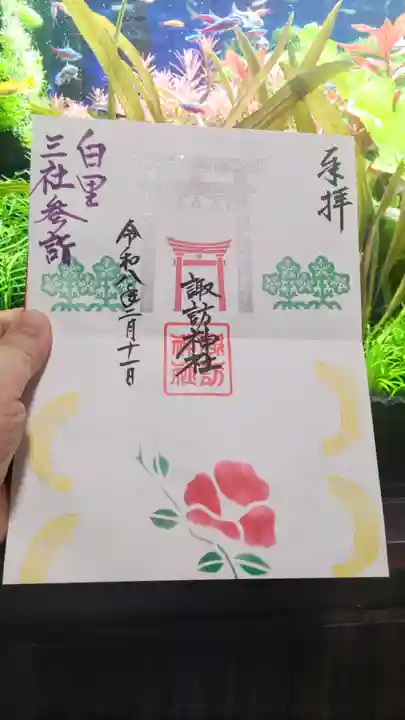 奉拝
諏訪神社
令和八年二月十一日
白里
三社参詣
諏訪
神社